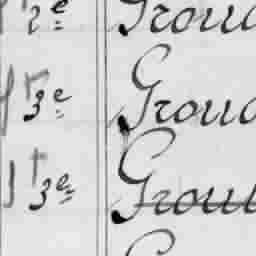 2e Grou
3e Grou
3e Grou